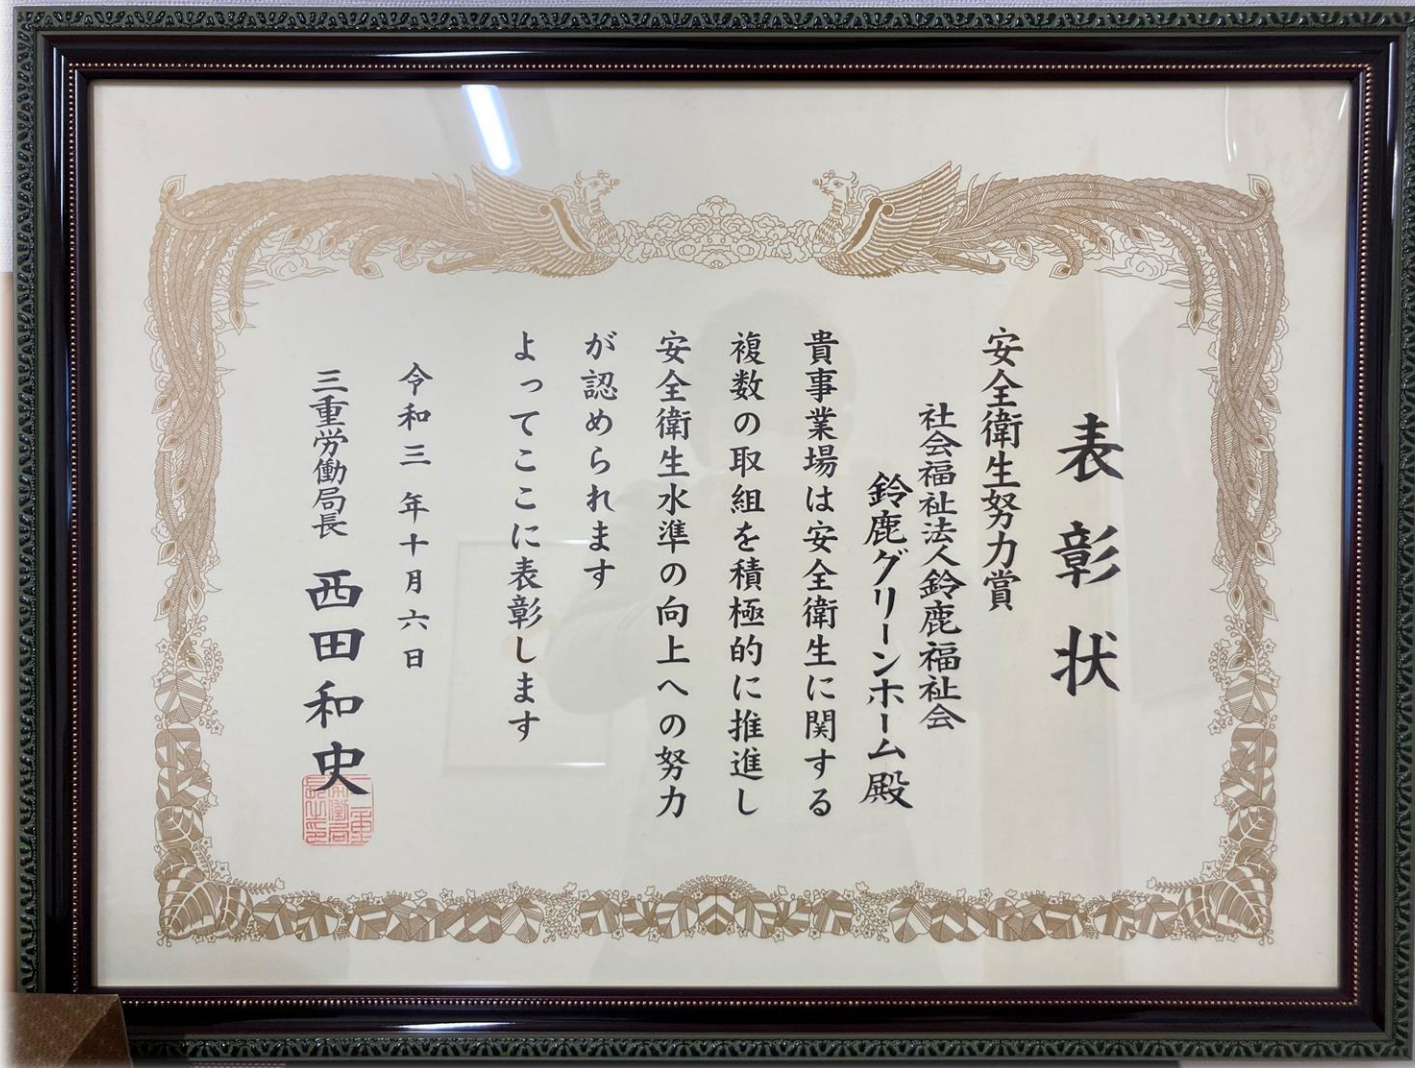 表彰状
安全衛生努力賞
社会福祉法人鈴鹿福祉会
鈴鹿グリーンホーム殿
貴事業場は安全衛生に関する
複数の取組を積極的に推進し
安全衛生水準の向上への努力
が認められます
よってここに表彰します
令和三年十月六日
三重労働局長 西田和史